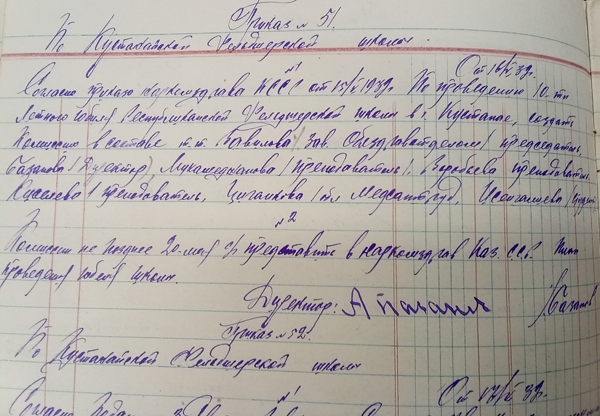 Приказ № 51.
По Кустанайской Фельдшерской школы.
От 16/V 39г.
№1
Согласно приказа Наркомздрава КССР от 15/V 1939г. По проведению 10-ти
летнего юбилея Республиканской Фельдшерской школы в г. Кустанае, создать
Комиссию в составе т.т. Зав. Облздравотделом/ председатель,
Базанова /Директор/, Мукашеджанова /преподаватель/, Воробьева преподаватель,
Киселева /преподаватель, Цыганкова Медсантруд,
№2
Комиссии не позднее 20-мая с/г представить в наркомздрав Каз. С.С.Р. План
проведения юбилея школы.
Директор: /Базанов
Приказ № 52.
По Кустанайской Фельдшерской школы
От 17/V 39г.
№1
Согласно